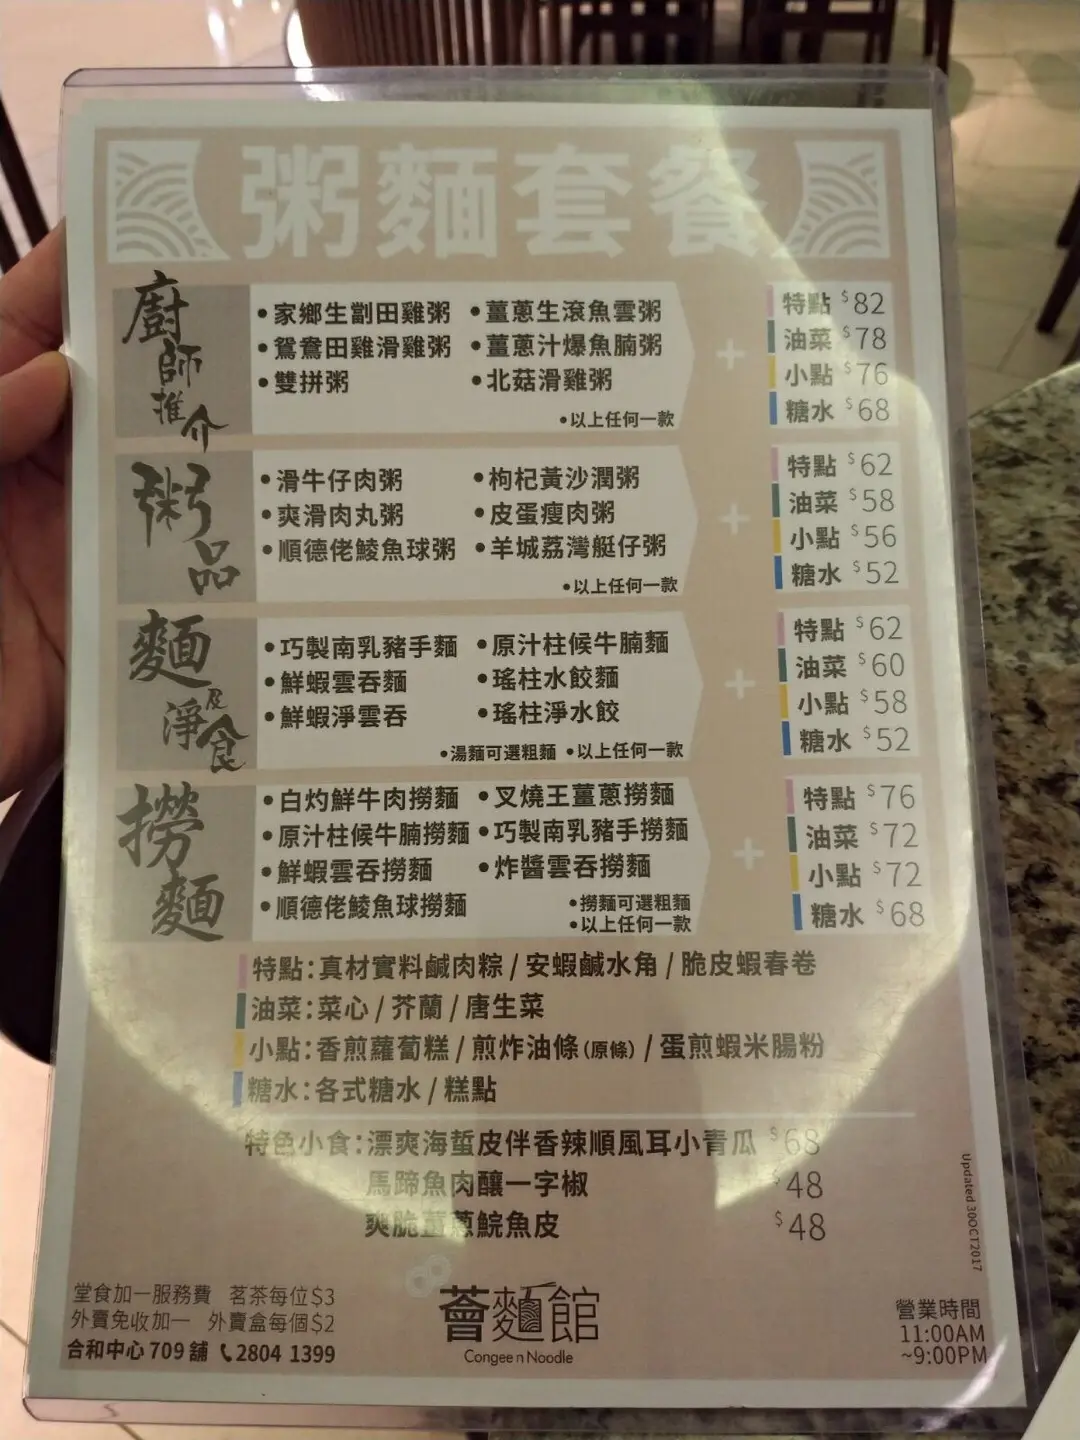 粥麵套餐
廚師推介
•家鄉生劏田雞粥 •薑蔥生滾魚雲粥
•鴛鴦田雞滑雞粥 •薑蔥汁爆魚腩粥
•雙拼粥 •北菇滑雞粥
•以上任何一款
+
特點 $82
油菜 $78
小點 $76
糖水 $68
粥品
•滑牛仔肉粥 •枸杞黃沙潤粥
•爽滑肉丸粥 •皮蛋瘦肉粥
•順德佬鯪魚球粥 •羊城荔灣艇仔粥
•以上任何一款
+
特點 $62
油菜 $58
小點 $56
糖水 $52
麵及淨食
•巧製南乳豬手麵 •原汁柱候牛腩麵
•鮮蝦雲吞麵 •瑤柱水餃麵
•鮮蝦淨雲吞 •瑤柱淨水餃
•湯麵可選粗麵 •以上任何一款
+
特點 $62
油菜 $60
小點 $58
糖水 $52
撈麵
•白灼鮮牛肉撈麵 •叉燒王薑蔥撈麵
•原汁柱候牛腩撈麵 •巧製南乳豬手撈麵
•鮮蝦雲吞撈麵 •炸醬雲吞撈麵
•順德佬鯪魚球撈麵 •撈麵可選粗麵
•以上任何一款
+
特點 $76
油菜 $72
小點 $72
糖水 $68
特點:真材實料鹹肉粽 / 安蝦鹹水角 / 脆皮蝦春卷
油菜:菜心 / 芥蘭 / 唐生菜
小點:香煎蘿蔔糕 / 煎炸油條(原條) / 蛋煎蝦米腸粉
糖水:各式糖水 / 糕點
特色小食:漂爽海蜇皮伴香辣順風耳小青瓜 $68
馬蹄魚肉釀一字椒 $48
爽脆薑蔥鯇魚皮 $48
Updated 30OCT2017
堂食加一服務費 茗茶每位$3
外賣免收加一 外賣盒每個$2
合和中心 709 舖 2804 1399
薈麵館
Congee n Noodle
營業時間
11:00AM
~9:00PM